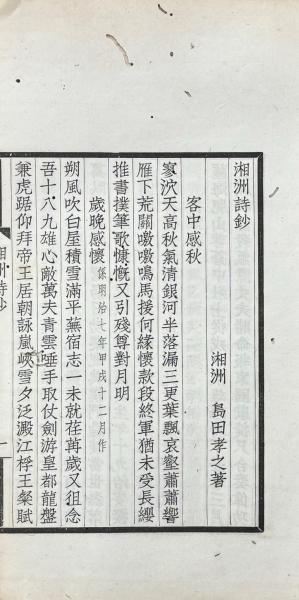 湘洲詩鈔
湘洲 島田孝之著
客中感秋
寥泬天高秋氣清銀河半落漏三更葉飄哀壑蕭蕭響
雁下荒關噭噭鳴馬援何緣懷款段終軍猶未受長纓
推書撲筆歌慷慨又引殘尊對月明
歲晚感懷 係明治七年甲戌十二月作
朔風吹白屋積雪滿平蕪宿志一未就荏苒歲又徂念
吾十八九雄心敵萬夫青雲唾手取仗劍游皇都龍盤
兼虎踞仰拜帝王居朝詠嵐峽雪夕泛澱江桴王粲賦
湘洲詩鈔
一